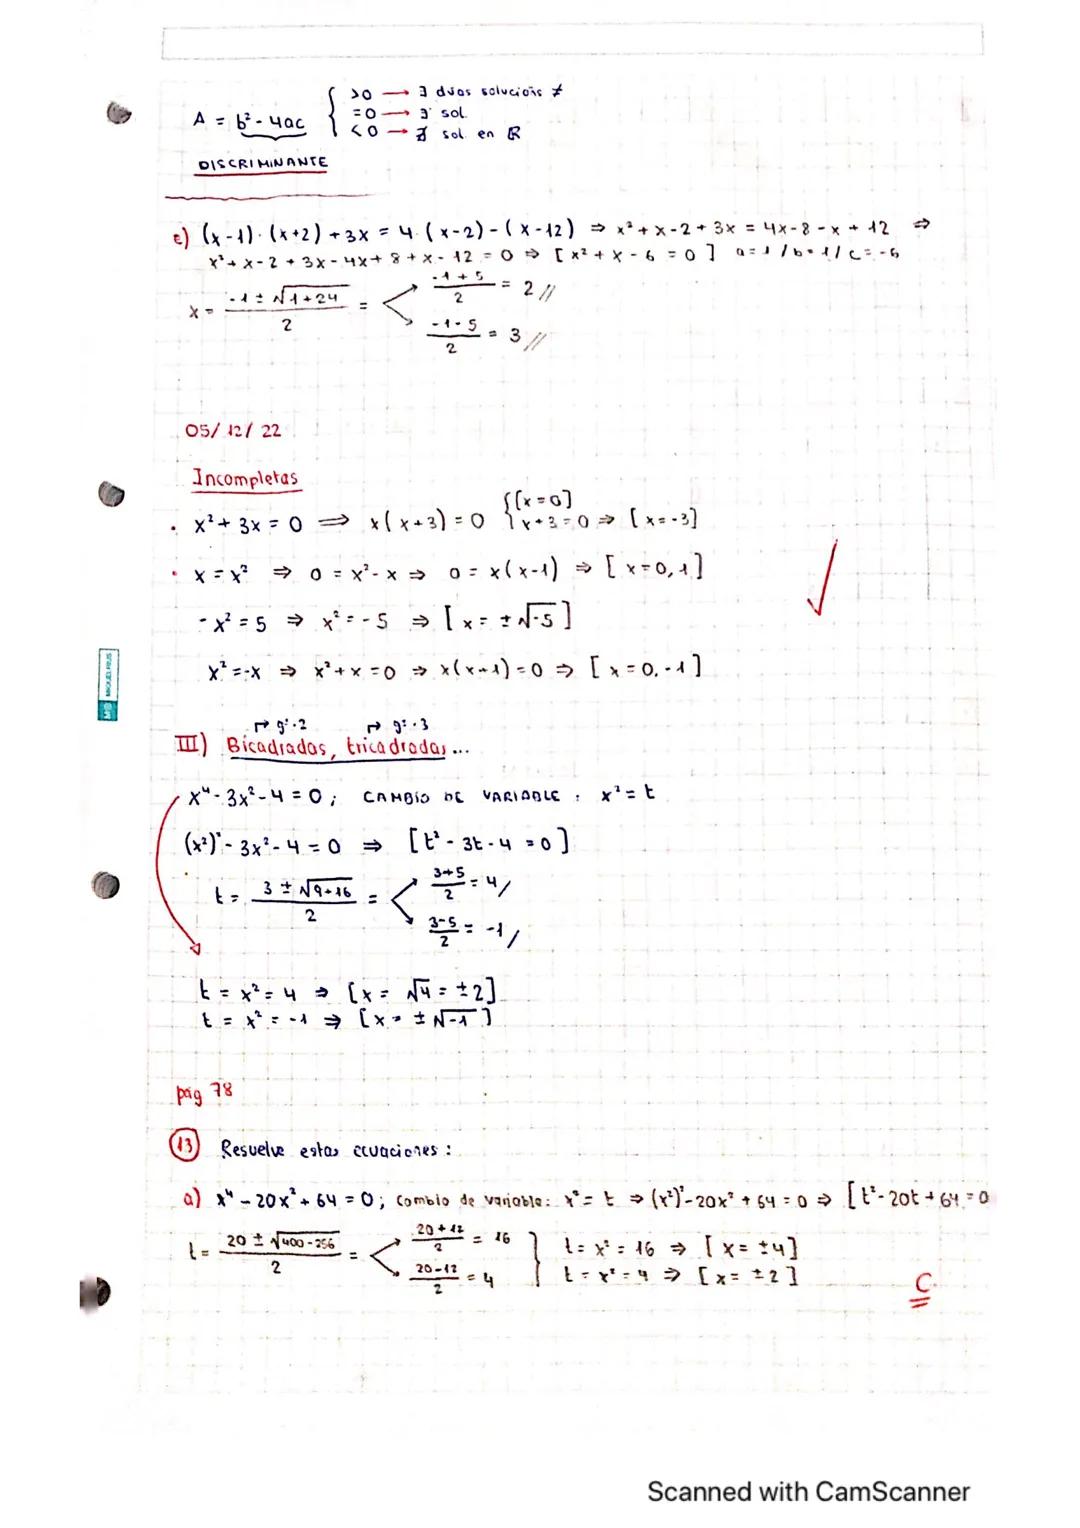 A = b² - 4ac { >0 → ∃ dúas solucións ≠
=0 → ∃ sol.
<0 → ∄ sol. en ℝ
DISCRIMINANTE
c) (x-1)·(x+2)+3x = 4·(x-2)-(x-12) ⇒ x²+x-2+3x = 4x-8-x+12 ⇒
x²+x-2+3x-4x+8+x-12=0 ⇒ [x²+x-6=0] a=1/b=1/c=-6
x = (-1±√1+24)/2 = < (-1+5)/2 = 2//
(-1-5)/2 = 3//
05/12/22
Incompletas
· x²+3x=0 ⇒ x(x+3)=0 { [x=0]
x+3=0 ⇒ [x=-3]
· x=x² ⇒ 0=x²-x ⇒ 0=x(x-1) ⇒ [x=0,1]
-x²=5 ⇒ x²=-5 ⇒ [x=±√-5]
x²=-x ⇒ x²+x=0 ⇒ x(x+1)=0 ⇒ [x=0,-1]
MIQUELRIUS
↱ gº.2 ↱ gº.3
III) Bicadradas, tricadradas...
x⁴-3x²-4=0; CAMBIO DE VARIABLE: x²=t
(x²)²-3x²-4=0 ⇒ [t²-3t-4=0]
t = (3±√9+16)/2 = < (3+5)/2 = 4/
(3-5)/2 = -1/
t=x²=4 ⇒ [x=√4=±2]
t=x²=-1 ⇒ [x=±√-1]
pág 78
13 Resuelve estas ecuaciones:
a) x⁴-20x²+64=0; Cambio de variable: x²=t ⇒ (x²)²-20x²+64=0 ⇒ [t²-20t+64=0
t = (20±√400-256)/2 = < (20+12)/2 = 16 } t=x²=16 ⇒ [x=±4]
(20-12)/2 = 4 } t=x²=4 ⇒ [x=±2]
C.
Scanned with CamScanner